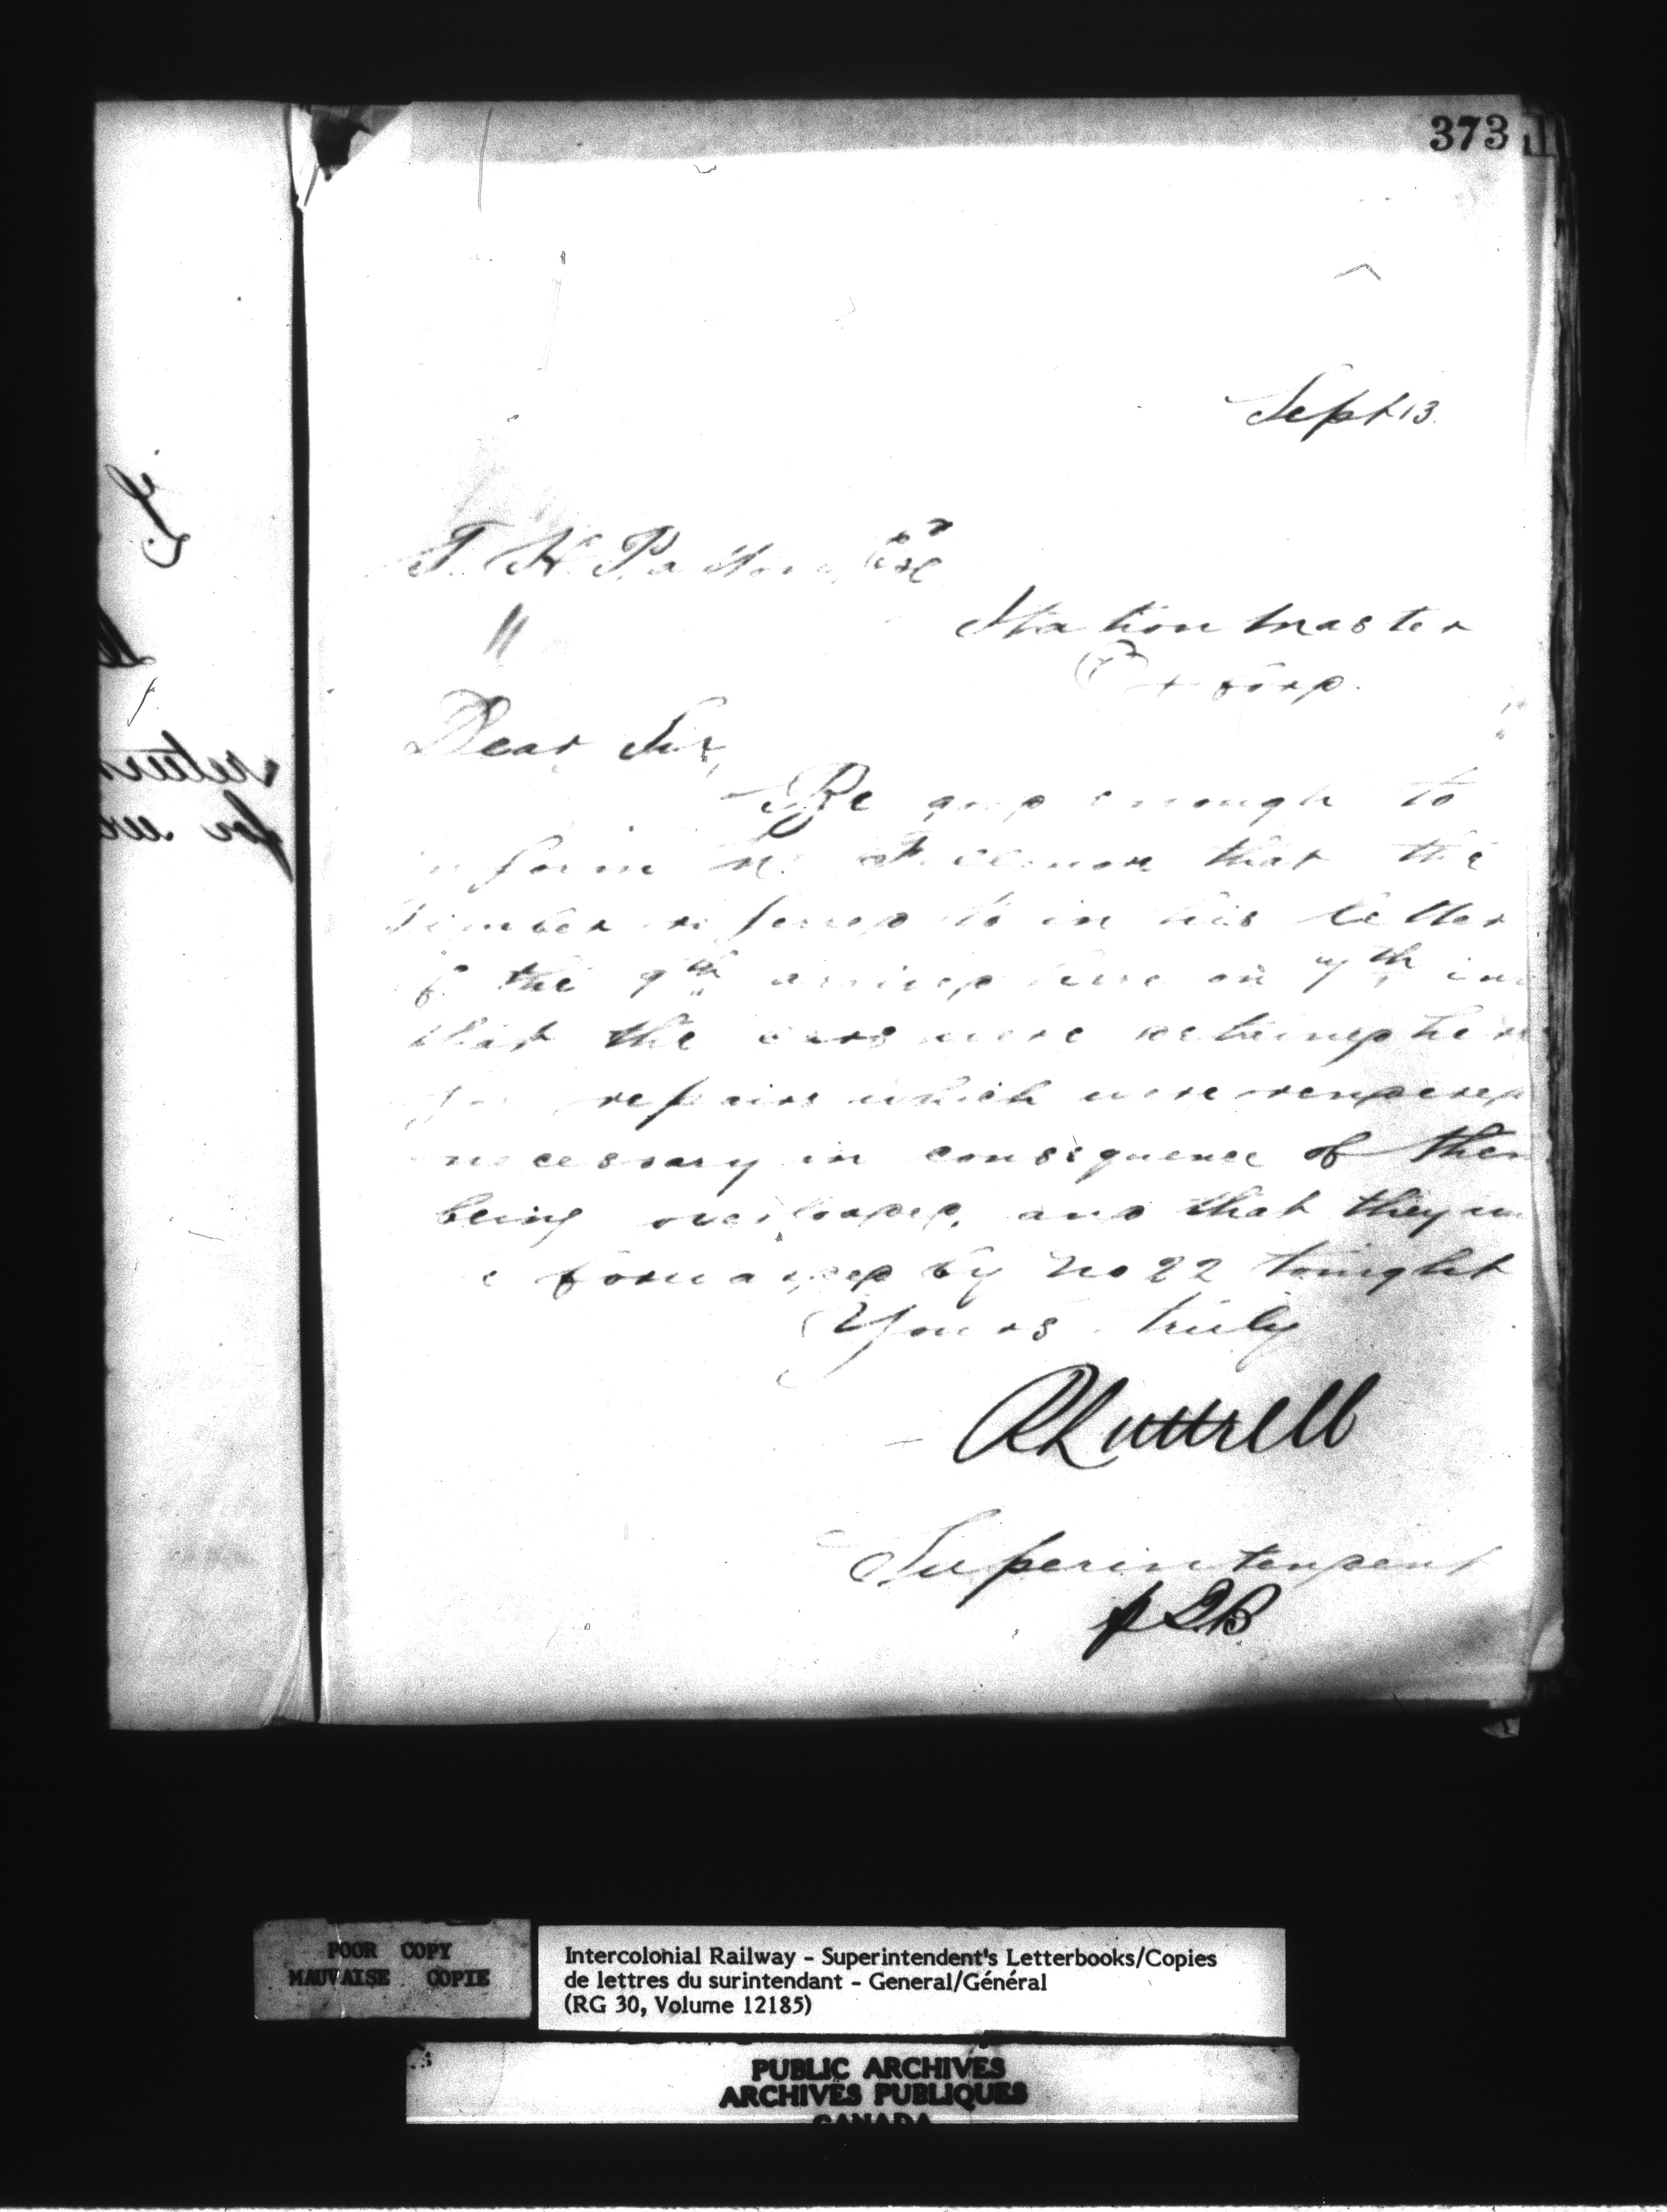 373
Sept 13.
T. H. Patton Esqr
Station Master
Oxford.
Dear Sir,
Be good enough to
inform Mr. that the
Timber referred to in his letter
of the 9th arrived here on 7th in
that the cars were retained here
for repairs which were rendered
necessary in consequence of them
being overloaded, and that they
forwarded by No 22 tonight
Yours truly
R Luttrell
Superintendent
p
return
for
POOR COPY
MAUVAISE COPIE
Intercolonial Railway - Superintendent's Letterbooks/Copies
de lettres du surintendant - General/Général
(RG 30, Volume 12185)
PUBLIC ARCHIVES
ARCHIVES PUBLIQUES
CANADA